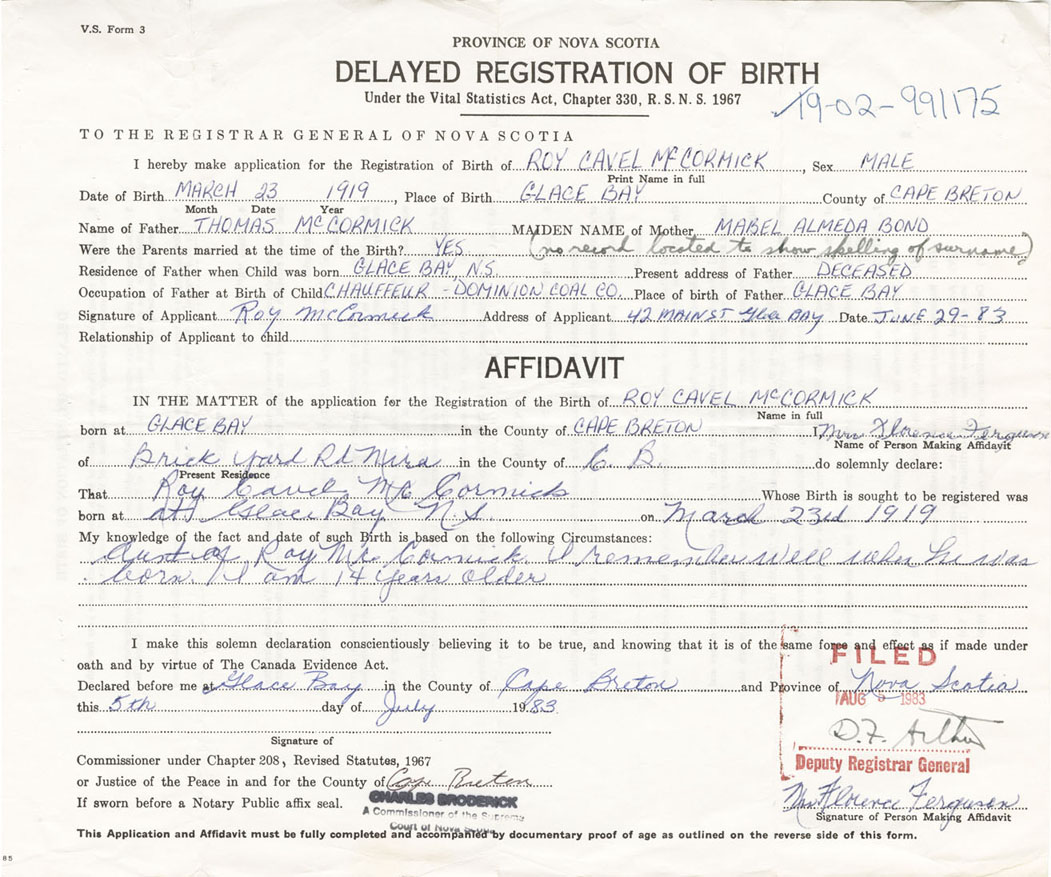 V.S. Form 3
PROVINCE OF NOVA SCOTIA
DELAYED REGISTRATION OF BIRTH
Under the Vital Statistics Act, Chapter 330, R.S.N.S. 1967
19-02-991175
TO THE REGISTRAR GENERAL OF NOVA SCOTIA
I hereby make application for the Registration of Birth of ROY CAVEL McCORMICK, Sex MALE
Print Name in full
Date of Birth MARCH 23 1919, Place of Birth GLACE BAY County of CAPE BRETON
Month Date Year
Name of Father THOMAS McCORMICK MAIDEN NAME of Mother MABEL ALMEDA BOND
Were the Parents married at the time of the Birth? YES (no record located to show spelling of surname)
Residence of Father when Child was born GLACE BAY, N.S. Present address of Father DECEASED
Occupation of Father at Birth of Child CHAUFFEUR - DOMINION COAL CO. Place of birth of Father GLACE BAY
Signature of Applicant Roy McCormick Address of Applicant 42 MAIN ST BAY Date JUNE 29-83
Relationship of Applicant to child
AFFIDAVIT
IN THE MATTER of the application for the Registration of the Birth of ROY CAVEL McCORMICK
Name in full
born at GLACE BAY in the County of CAPE BRETON I, Mrs Florence Ferguson
Name of Person Making Affidavit
of Brick Yard Rd Mira in the County of C. B do solemnly declare:
Present Residence
That Roy Cavel McCormick Whose Birth is sought to be registered was
born at at Glace Bay N.S. on March 23rd 1919
My knowledge of the fact and date of such Birth is based on the following Circumstances:
Aunt of Roy McCormick. I remember well when he was
born. I am 14 years older
I make this solemn declaration conscientiously believing it to be true, and knowing that it is of the same force and effect as if made under
oath and by virtue of The Canada Evidence Act.
FILED
Declared before me at Glace Bay in the County of Cape Breton and Province of Nova Scotia
this 5th day of July 1983
AUG 5 1983
D.F. Arthur
Signature of
Commissioner under Chapter 208, Revised Statutes, 1967
Deputy Registrar General
or Justice of the Peace in and for the County of Cape Breton
If sworn before a Notary Public affix seal.
CHARLES BRODERICK
A Commissioner of the Supreme
Court of Nova Scotia
Mrs Florence Ferguson
Signature of Person Making Affidavit
This Application and Affidavit must be fully completed and accompanied by documentary proof of age as outlined on the reverse side of this form.
85